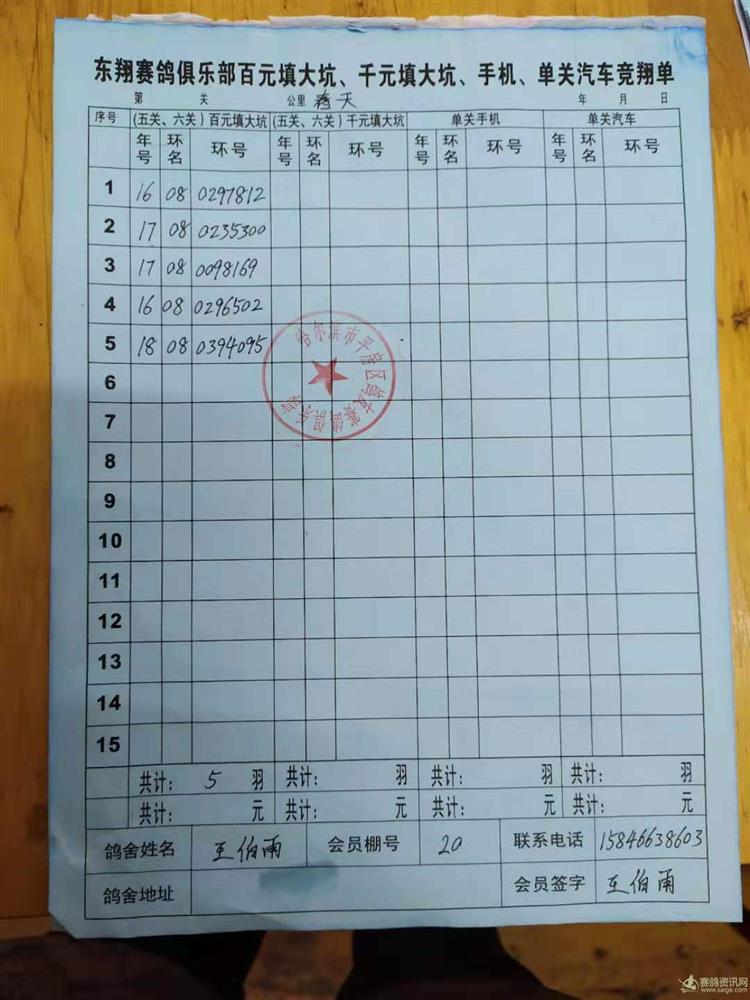 东翔赛鸽俱乐部百元填大坑、千元填大坑、手机、单关汽车竞翔单
第 关 公里 春天 年 月 日
序号 (五关、六关)百元填大坑 (五关、六关)千元填大坑 单关手机 单关汽车
年号 环名 环号 年号 环名 环号 年号 环名 环号 年号 环名 环号
1 16 08 0297812
2 17 08 0235300
3 17 08 0098169
4 16 08 0296502
5 18 08 0394095
哈尔滨市平房区 赛鸽俱乐部
6
7
8
9
10
11
12
13
14
15
共计: 5 羽 共计: 羽 共计: 羽 共计: 羽
共计: 元 共计: 元 共计: 元 共计: 元
鸽舍姓名 王伯雨 会员棚号 20 联系电话 15846638603
鸽舍地址 会员签字 王伯雨
赛鸽资讯网
www.saige.com